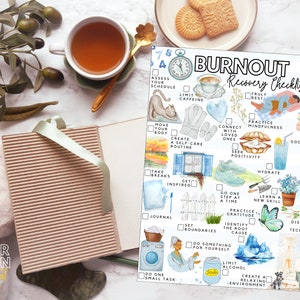 BURNOUT
Recovery Checklist
ASSESS
YOUR
SCHEDULE
LIMIT
CAFFEINE
TRULY
REST
MOVE
YOUR
BODY
CONNECT
WITH
LOVED
ONES
PRACTICE
MINDFULNESS
CREATE
A SELF-CARE
ROUTINE
SEEK
POSITIVITY
TAKE
BREAKS
GET
INSPIRED
HYDRATE
DO ONE
STEP AT
A TIME
LEARN A
NEW SKILL
JOURNAL
PRACTICE
GRATITUDE
SET
BOUNDARIES
IDENTIFY
THE ROOT
CAUSE
DO SOMETHING
FOR YOURSELF
DO ONE
SMALL TASK
LIMIT
ALCOHOL
CREATE A
RELAXING
ENVIRONMENT